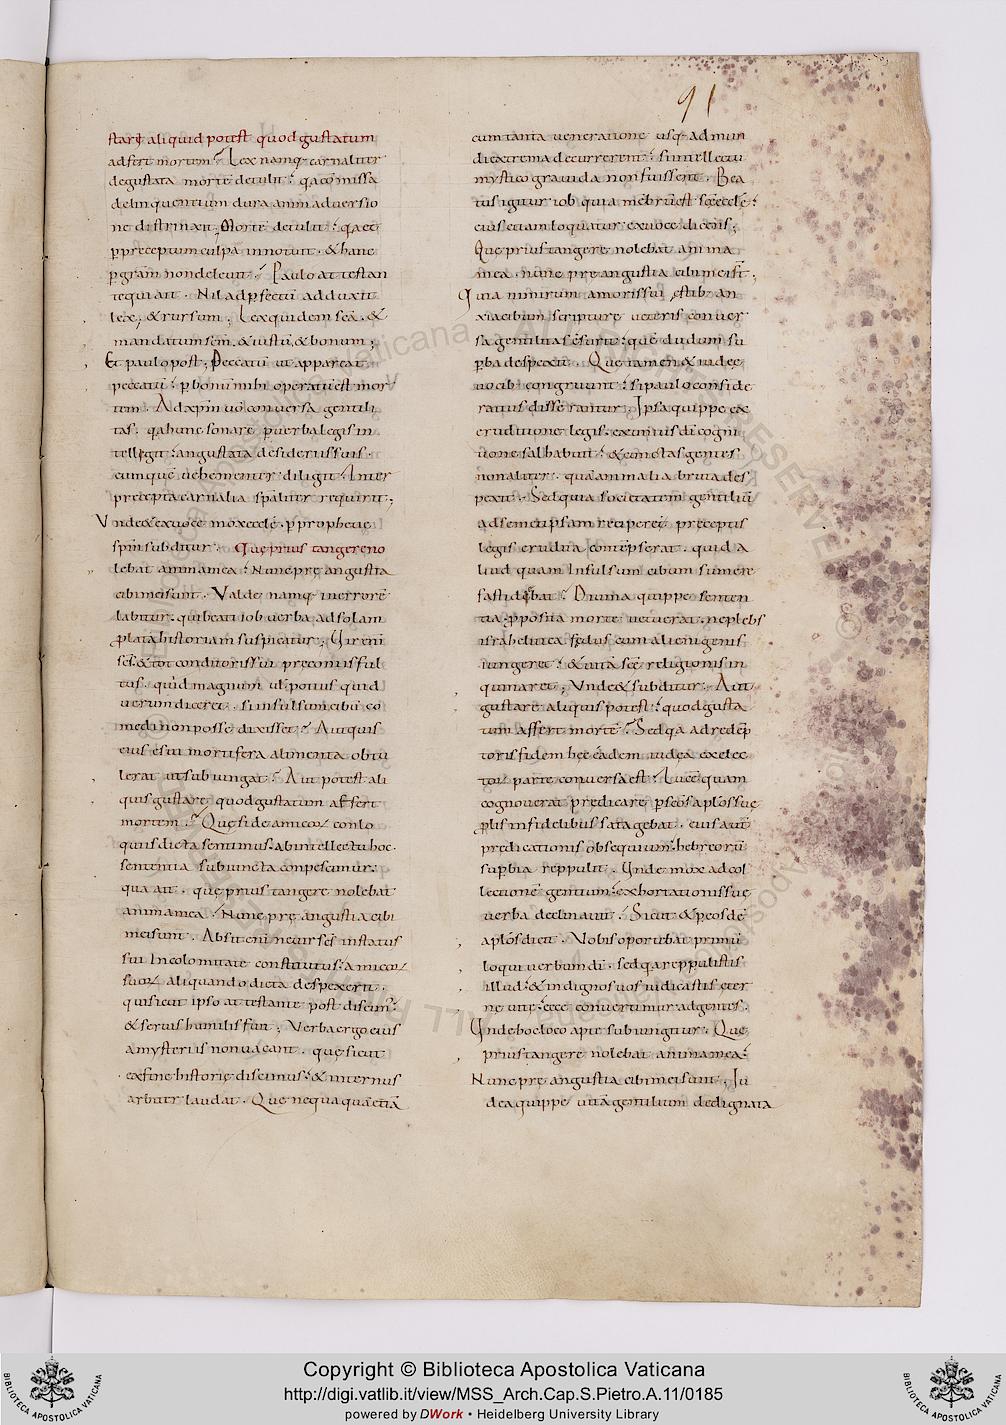 91
stare aliquid potest quod gustatum
adfert mortem; Lex namq; carnaliter
degustata morte detulit; q̄a com̄issa
delinquentium dura animadversio
ne distrinxit; Morte detulit; q̄a et
p preceptum culpā innotuit. & hanc
p grām non delevit; Paulo at testan
te qui ait. Nil ad pfectū adduxit
lex; & rursum; Lex quidem scā. &
mandatum scm̄. & iustū & bonum;
Et paulo post; Peccatū ut appareat
peccatū; p bonū mihi operatū est mor
tem. Ad xp̄m vō conversa gentili
tas. q̄a hunc sonare p verba legis in
tellegit; angustata desideriis suis.
cumque vehementer diligit; Inter
precepta carnalia sp̄aliter requirit;
Unde & ex voce mox eccle. p prophetię
sp̄m subditur. Quę prius tangere no
lebat anima mea; Nunc pre angustia
cibi mei sunt. Valde namq; in errorē
labitur. qui beati iob verba ad solam
plata historiam suspicatur; Vir enī
scs̄. & tot conditoris sui preconiis ful
tus. quid magnum ul potius quid
verum diceret. si insulsum cibū co
medi non posse dixisset; Aut quis
eius esui mortifera alimenta obtu
lerat ut subiungat; Aut potest ali
quis gustare quod gustatum affert
mortem; Quę si de amicoꝝ conlo
quiis dicta sentimus. ab intellectu hoc.
sententia subiuncta conpescimur.
qua ait. quę prius tangere nolebat
anima mea; Nunc prę angustia cibi
mei sunt. Absit enī ne vir scs̄ in status
sui incolomitate constitutus; amicoꝝ
suoꝝ aliquando dicta despexerit.
qui sicut ipso at testante post discim;
& servis humilis fuit; Verba ergo eius
a mysteriis non vacant. quę sicut
ex fine historię discimus; & internus
arbiter laudat. Que nequaquā etiā
cum tanta veneratione usq; ad mun
di extrema decurrerent; si intellectu
mystico gravida non fuissent. Bea
tus igitur iob quia mēbrū est scę eccłę;
eius etiam loquatur ex voce dicens;
Que prius tangere nolebat anima
mea. nunc pre angustia cibi mei sr̄;
Quia nimirum amoris sui estib; an
xia cibum scripturę veteris conver
sa gentilitas ēsurit; quē dudum su
pba despexit. Quę tamen & iudeę
vocib; congruunt; si paulo conside
ratius disserantur. Ipsa quippe ex
eruditione legis. ex unius dī cogni
tione sal habuit; & cunctas gentes
non aliter. quā animalia bruta des
pexit. Sed quia societatem gentiliū
ad semetipsam recipere preceptis
legis erudita contēpserat. quid a
liud quam Insulsum cibum sumere
fastidebat; Divina quippe senten
tia pposita morte vetuerat. ne plebs
israhelitica fedus cum alienigenis
iungeret; & vitā scę religionis in
quinaret; Unde & subditur. Aut
gustare aliquis potest; quod gusta
tum affert mortē; Sed q̄a ad redēp
toris fidem hęc eadem iudea ex elec
tor̄ parte conversa est; Lucē quam
cognoverat predicare p scōs aplōs suę
plis infidelibus satagebat. eius aut̄
predicationis obsequium. hebreorū
supbia reppulit. Unde mox ad col
lectionē gentium; exhortationis suę
verba declinavit; Sicut & p eosdē
aplōs dicit. Nobis oportebat primū
loqui verbum dī. sed q̄a reppulistis
illud; & indignos vos iudicastis eter
ne vitę; ecce convertimur ad gentes.
Unde hoc loco apte subiungitur. Que
prius tangere nolebat anima mea;
Nunc pre angustia cibi mei sunt; Iu
dea quippe vitā gentilium dedignata
Copyright © Biblioteca Apostolica Vaticana
http://digi.vatlib.it/view/MSS_Arch.Cap.S.Pietro.A.11/0185
powered by DWork • Heidelberg University Library
BIBLIOTECA APOSTOLICA VATICANA
BIBLIOTECA APOSTOLICA VATICANA